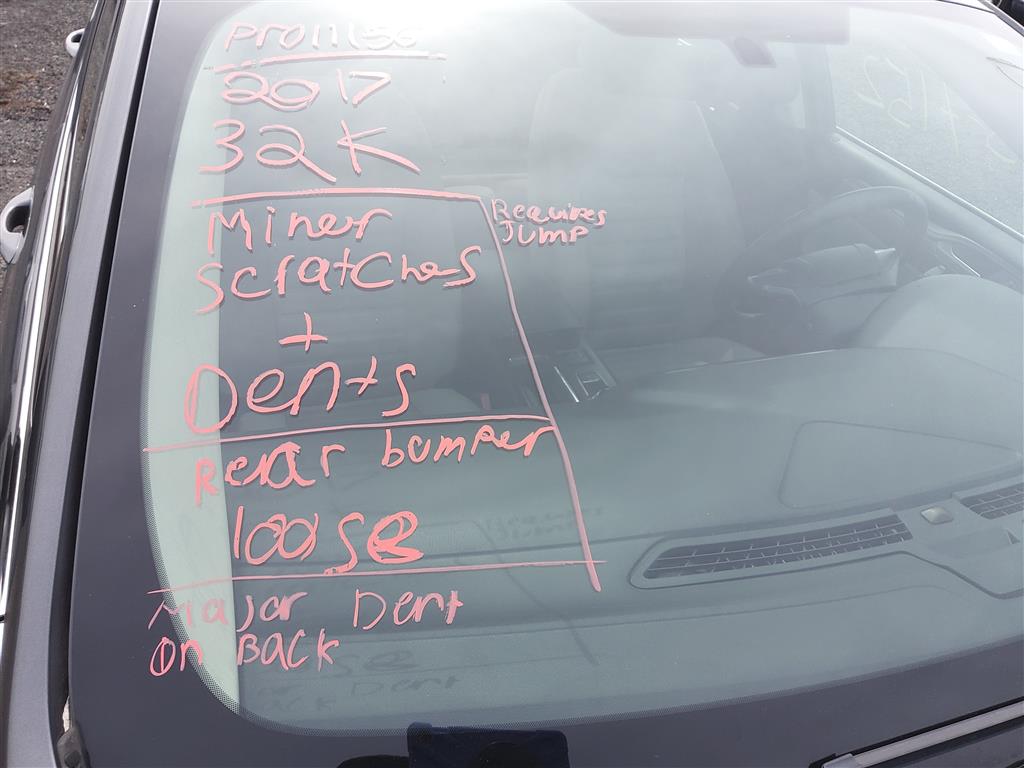 2017
32K
Miner
Scratches
+
Dents
Requires
Jump
Rear bumper
loose
Major Dent
on Back